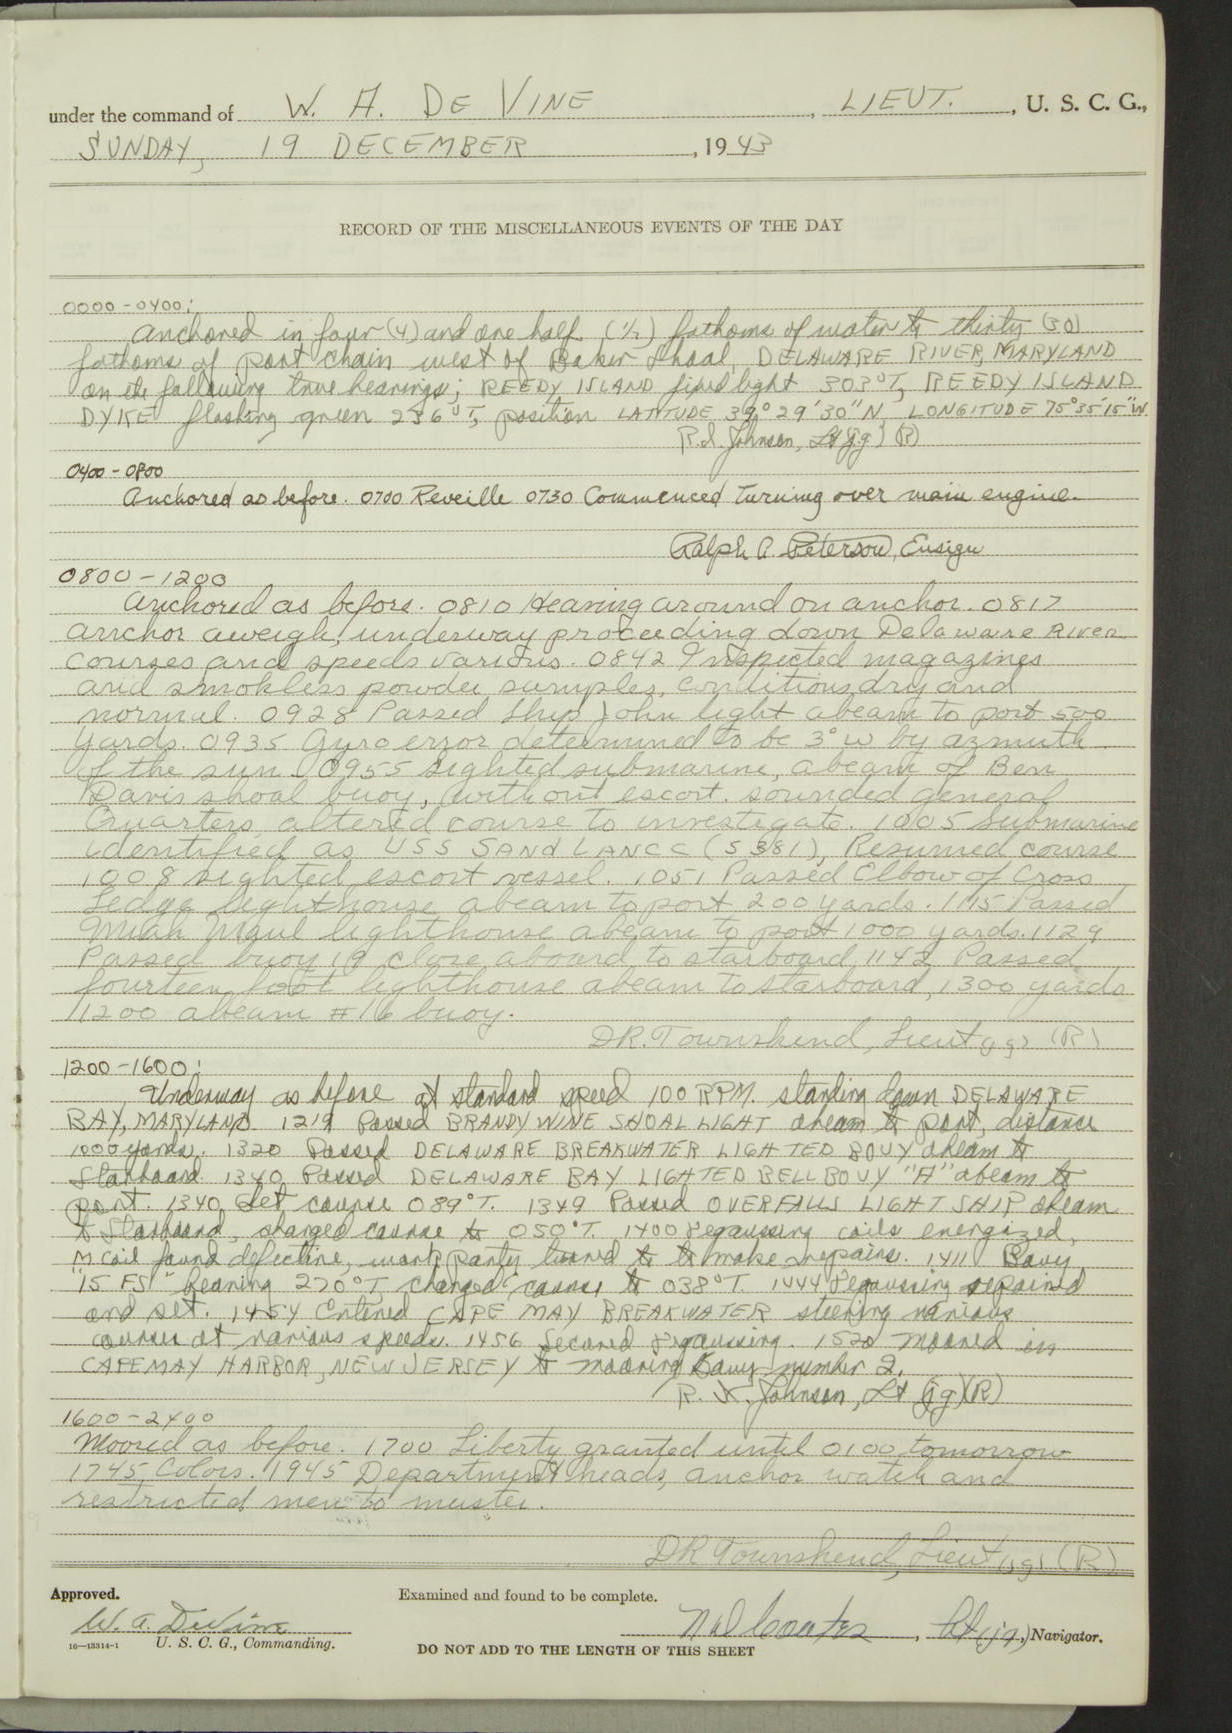 under the command of W. A. DE VINE, LIEUT., U. S. C. G.,
SUNDAY, 19 DECEMBER, 1943
RECORD OF THE MISCELLANEOUS EVENTS OF THE DAY
0000-0400:
Anchored in four (4) and one half (1/2) fathoms of water to thirty (30)
fathoms of port chain west of Baker Shoal, DELAWARE RIVER, MARYLAND
on the following true bearings; REEDY ISLAND fixed light 303°T, REEDY ISLAND
DYKE flashing green 236°T, position LATITUDE 39° 29' 30" N LONGITUDE 75° 35' 15" W.
Johnson, Lt (jg) (R)
0400-0800
Anchored as before. 0700 Reveille 0730 Commenced turning over main engine.
Ralph A. Peterson, Ensign
0800-1200
Anchored as before. 0810 Heaving around on anchor. 0817
anchor aweigh, underway proceeding down Delaware River
courses and speeds various. 0842 Inspected magazines
and smokless powder samples, conditions dry and
normal. 0928 Passed Ship John light abeam to port 500
yards. 0935 Gyro error determined to be 3° W by azmuth
of the sun. 0955 sighted submarine, abeam of Ben
Davis shoal buoy, without escort. sounded general
Quarters, altered course to investigate. 1005 Submarine
identified as USS SAND LANCE (S381), Resumed course
1008 sighted escort vessel. 1051 Passed Elbow of Cross
Ledge lighthouse abeam to port 200 yards. 1115 Passed
Miah Maul lighthouse abeam to port 1000 yards. 1129
Passed buoy 19 close aboard to starboard, 1142 Passed
fourteen foot lighthouse abeam to starboard, 1300 yards
1200 abeam #16 buoy.
DR. Townshend, Lieut (jg) (R)
1200-1600:
Underway as before at standard speed 100 RPM. standing down DELAWARE
BAY, MARYLAND. 1219 Passed BRANDYWINE SHOAL LIGHT abeam to port, distance
1000 yards. 1320 Passed DELAWARE BREAKWATER LIGHTED BOUY abeam to
Starboard 1340 Passed DELAWARE BAY LIGHTED BELL BOUY "A" abeam to
port. 1340 Set course 089°T. 1349 Passed OVERFALLS LIGHT SHIP abeam
to Starboard, changed course to 050°T. 1400 Degaussing coils energized,
"M" coil found defective, work party turned to to make repairs. 1411 Bouy
"15 FS" bearing 270°T, changed course to 038°T. 1444 Degaussing repaired
and set. 1454 Entered CAPE MAY BREAKWATER steering various
courses at various speeds. 1456 Secured degaussing. 1520 Moored in
CAPE MAY HARBOR, NEW JERSEY to mooring Bouy number 2.
Johnson, Lt (jg) (R)
1600-2400
Moored as before. 1700 Liberty granted until 0100 tomorrow
1745 Colors. 1945 Department heads, anchor watch and
restricted men to muster.
DR Townshend, Lieut (jg) (R)
Approved. Examined and found to be complete.
W. A. DeVine Lt (jg), Navigator.
16—13314-1 U. S. C. G., Commanding.
DO NOT ADD TO THE LENGTH OF THIS SHEET